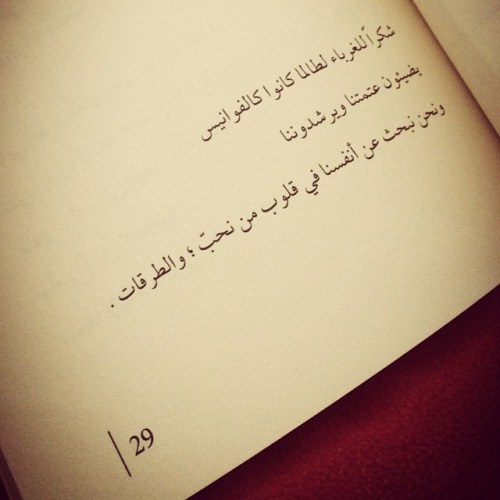 شكراً للغرباء لطالما كانوا كالفوانيس
يضيئون عتمتنا ويرشدوننا
ونحن نبحث عن أنفسنا في قلوب من نحبّ ؛ والطرقات .
29